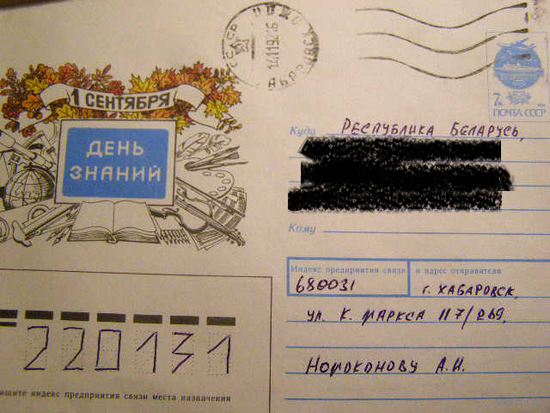 СССР
1 СЕНТЯБРЯ
ДЕНЬ
ЗНАНИЙ
7к
ПОЧТА СССР
Куда РЕСПУБЛИКА БЕЛАРУСЬ,
Кому
Индекс предприятия связи и адрес отправителя
680031 г. ХАБАРОВСК,
УЛ. К. МАРКСА 117/269,
НОМОКОНОВУ А.И.
220131
пишите индекс предприятия связи места назначения